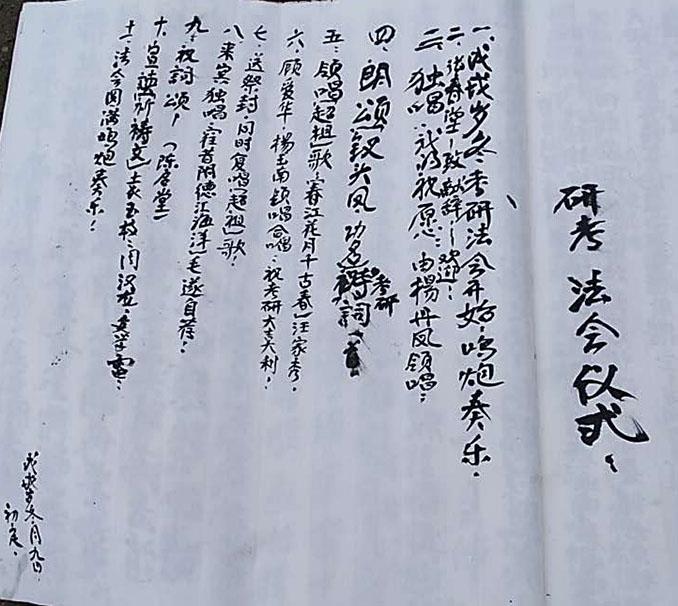 研考法会仪式：
一、戊戌岁冬考研法会开始，鸣炮奏乐。
二、张春堂致献辞～欢迎：
三、独唱：我的祝愿：由杨丹凤领唱：
四、朗颂钗头凤 功 考研祷词一首
五：领唱超祖歌（春江花月千古春）汪家秀。
六、顾爱华·杨玉南领唱合唱：祝考研大吉大利！
七、送祭封，同时复唱超祖歌。
八、来宾独唱：（往昔附德汇海洋）毛遂自荐！
九：祝词颂！（陈居堂）
十、宣 祈祷文
十一、法会圆满鸣炮奏乐！
戊戌岁冬月九日
初定。